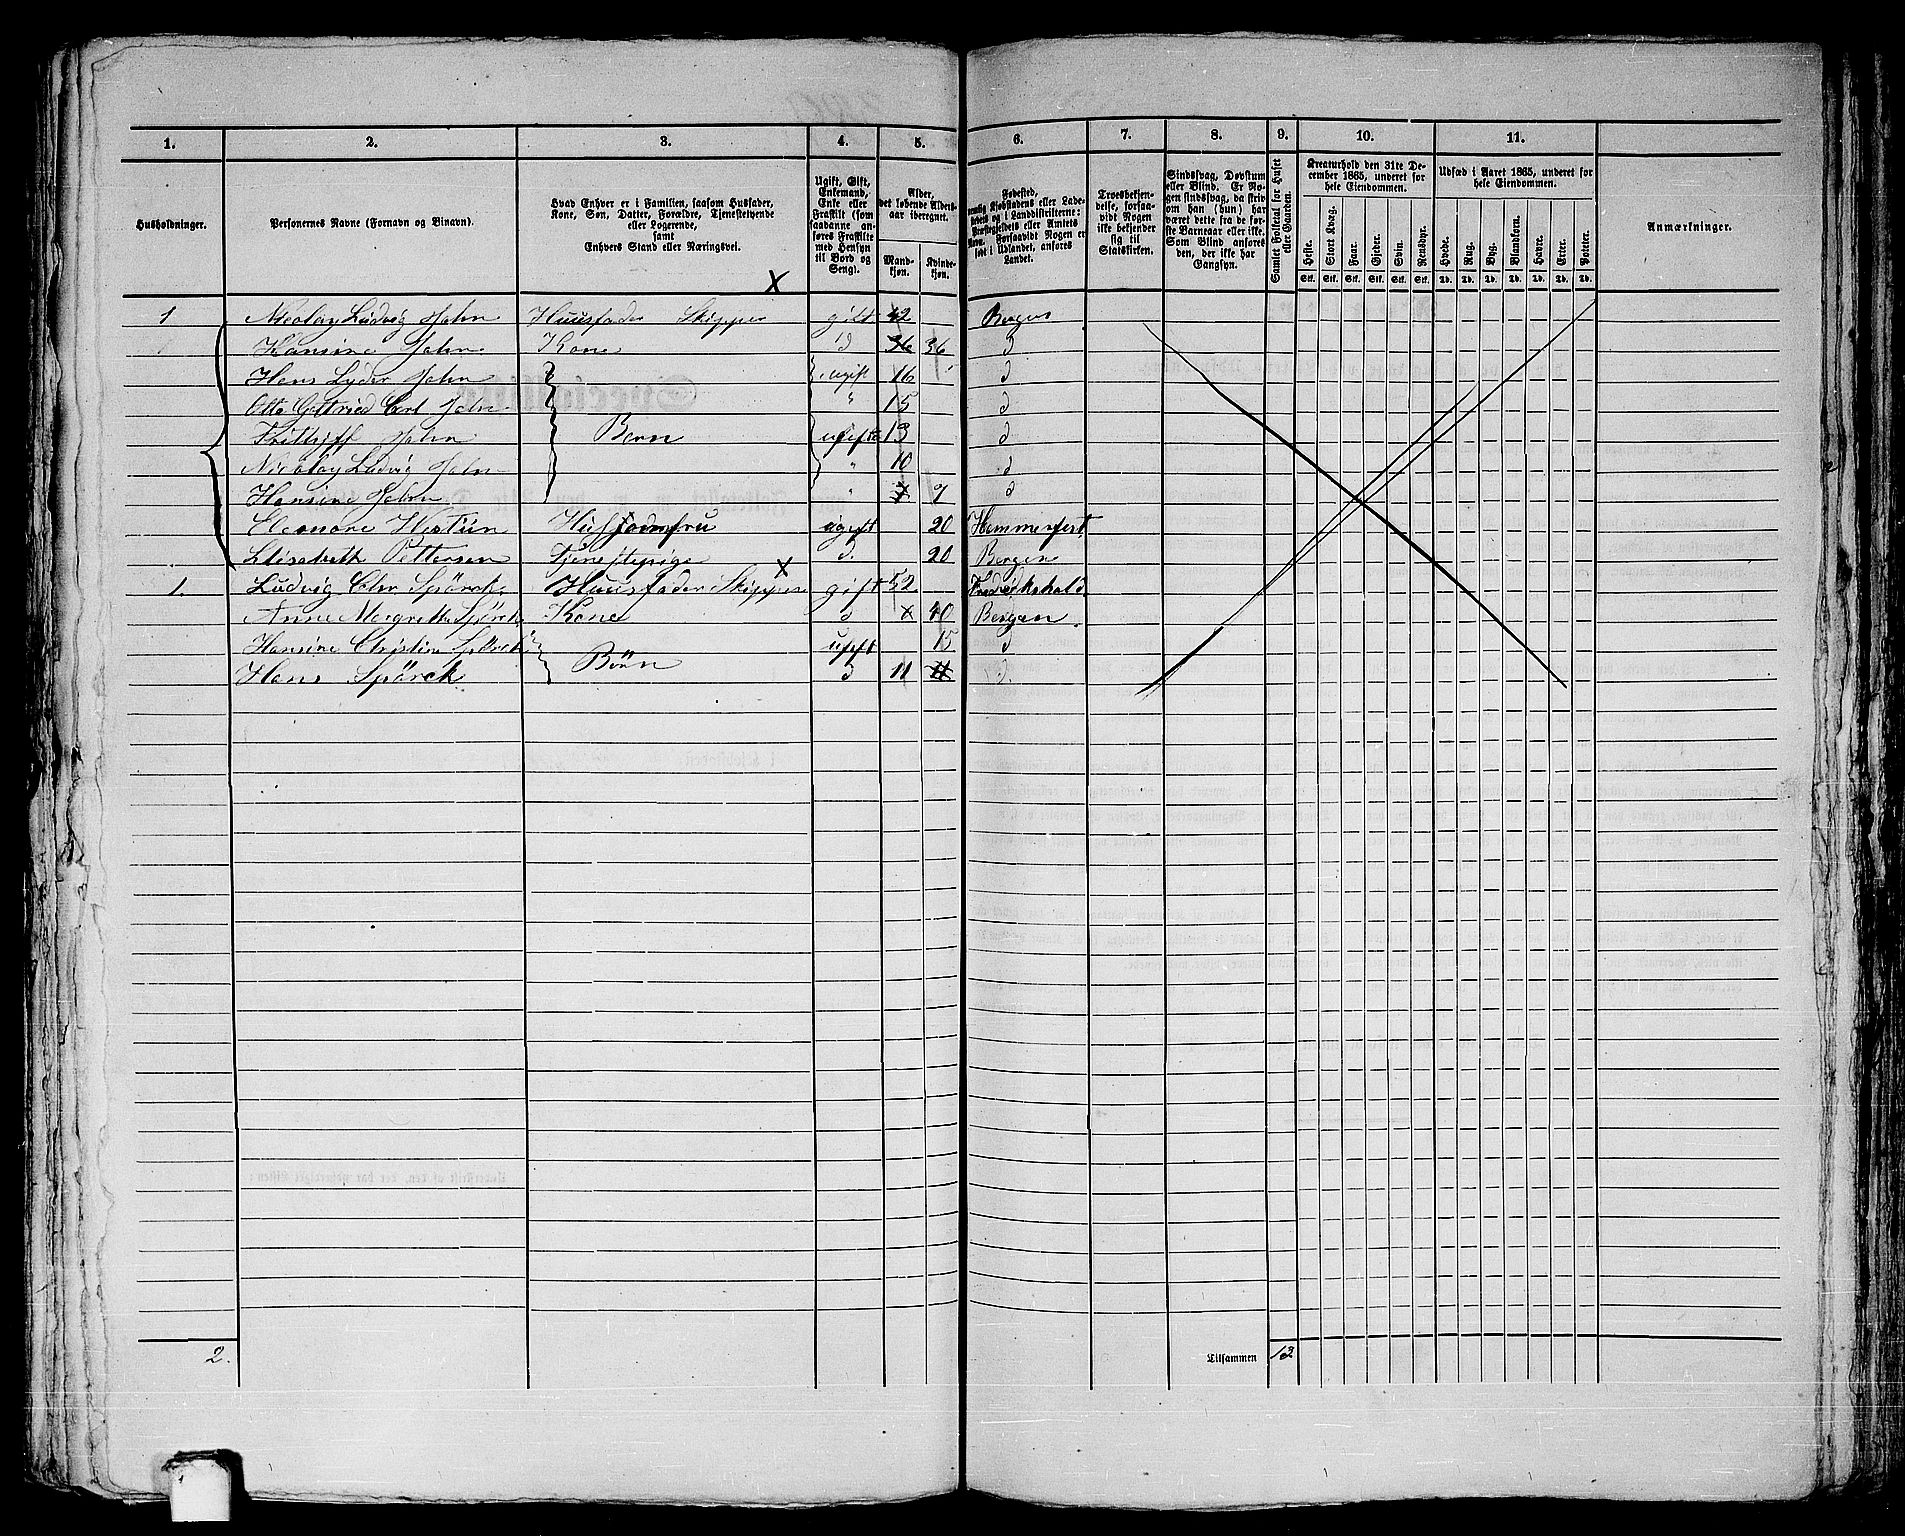 1. 2. 3. 4. 5. 6. 7. 8. 9. 10. 11.
Husholdninger.
Personernes Navne (Fornavn og Binavn).
Hvad Enhver er i Familien, saasom Husfader,
Kone, Søn, Datter, Forældre, Tjenestetyende
eller Logerende,
samt
Enhvers Stand eller Næringsvei.
Ugift, Gift,
Enkemand,
Enke eller
Fraskilt (som
saadanne an-
føres Fraskilte
med Hensyn
til Bord og
Seng).
Alder,
det løbende Alders-
aar iberegnet.
Mand-
kjøn.
Kvinde-
kjøn.
Fødested,
Landet.
Troesbekjen-
delse, forsaa-
vidt Nogen
ikke bekjender
sig til
Statskirken.
Sindssvag, Døvstum
eller Blind. Er No-
gen sindssvag, da skriv
om han (hun) har
været dette fra de før-
ste Barneaar eller ikke.
Som Blind anføres
den, der ikke har
Gangsyn.
Samlet Folketal for Huset
eller Gaarden.
Kreaturhold den 31te De-
cember 1865, underet for
hele Eiendommen.
Heste. Stort Kvæg. Faar. Gjeder. Svin. Rensdyr.
Stk. Stk. Stk. Stk. Stk. Stk.
Udsæd i Aaret 1865, underet for
hele Eiendommen.
Hvede. Rug. Byg. Blandkorn. Havre. Erter. Poteter.
Td. Td. Td. Td. Td. Td. Td.
Anmærkninger.
1 Nicolay Ludvig Jahn Huusfader Skipper gift 42 Bergen
Hansine Jahn Kone d 36 36 d
Hans Lyder Jahn ugift 16 d
Otto Gottfried Carl Jahn " 15 d
Frithjof Jahn Børn ugifte 13 d
Nicolay Ludvig Jahn " 10 d
Hansine Jahn " 7 7 d
Eleonore Husjomfru ugift 20 Hammerfest
Elisabeth Pettersen Tjenestepige d. 20 Bergen
1. Ludvig Chr Spörck Huusfader Skipper gift 52 Fredrikshald
Anne Margrethe Spörck Kone d 40 Bergen
Hansine Christine Spörck ugift 15 d
Hans Spörck Börn d 11 11 d
2. Tilsammen 13